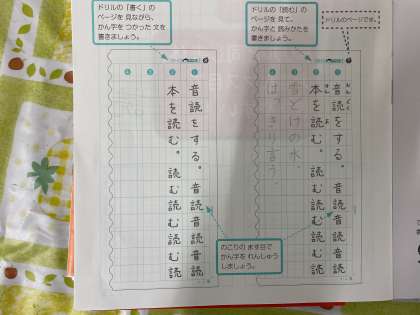 ドリルの「書く」の
ページを見ながら、
かん字をつかった文を
書きましょう。
ドリルの「読む」の
ページを見て、
かん字と読みかたを
書きましょう。
ドリルのページです。
音読をする。音読音読音読
本を読む。読む読む読
音読をする。音読音読音読
本を読む。読む読む読
のこりのます目で
かん字をれんしゅう
しましょう。